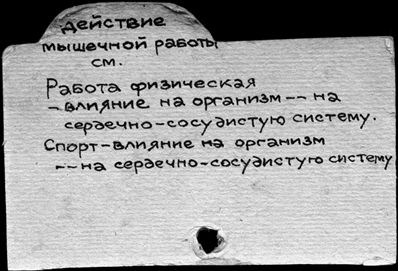 действие
мышечной работы
см.
Работа физическая
-влияние на организм -- на
сердечно-сосудистую систему.
Спорт-влияние на организм
--на сердечно-сосудистую систему